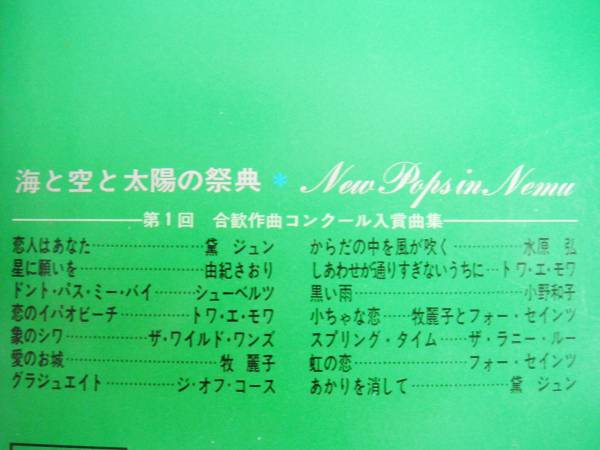 海と空と太陽の祭典 * New Pops in Nemu
第1回 合歓作曲コンクール入賞曲集
恋人はあなた……………黛 ジュン
星に願いを………………由紀さおり
ドント・パス・ミー・バイ……シューベルツ
恋のイパオビーチ…………トワ・エ・モワ
象のシワ…………ザ・ワイルド・ワンズ
愛のお城……………………牧 麗子
グラジュエイト…………ジ・オフ・コース
からだの中を風が吹く…………水原 弘
しあわせが通りすぎないうちに…トワ・エ・モワ
黒い雨………………………小野和子
小ちゃな恋……牧麗子とフォー・セインツ
スプリング・タイム……ザ・ラニー・ルー
虹の恋………………フォー・セインツ
あかりを消して……………黛 ジュン